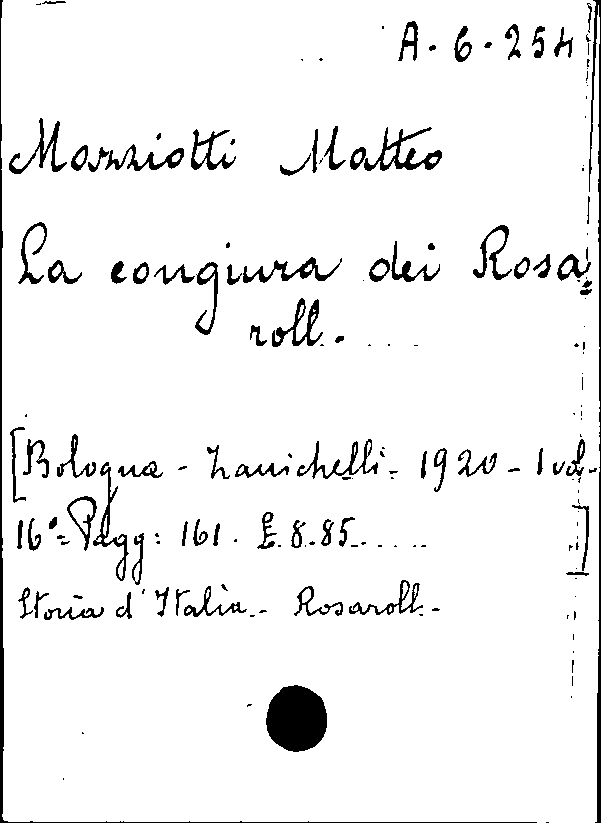 A-6-254
Mazziotti Matteo
La congiura dei Rosa=
roll.
[Bologna - Zanichelli - 1920 - 1 vol.-
16°= Pagg: 161. £ 8.85 ]
Storia d'Italia - Rosaroll -